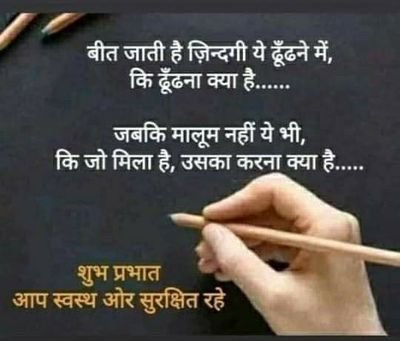 बीत जाती है ज़िन्दगी ये ढूँढने में,
कि ढूँढना क्या है......
जबकि मालूम नहीं ये भी,
कि जो मिला है, उसका करना क्या है.....
शुभ प्रभात
आप स्वस्थ ओर सुरक्षित रहे